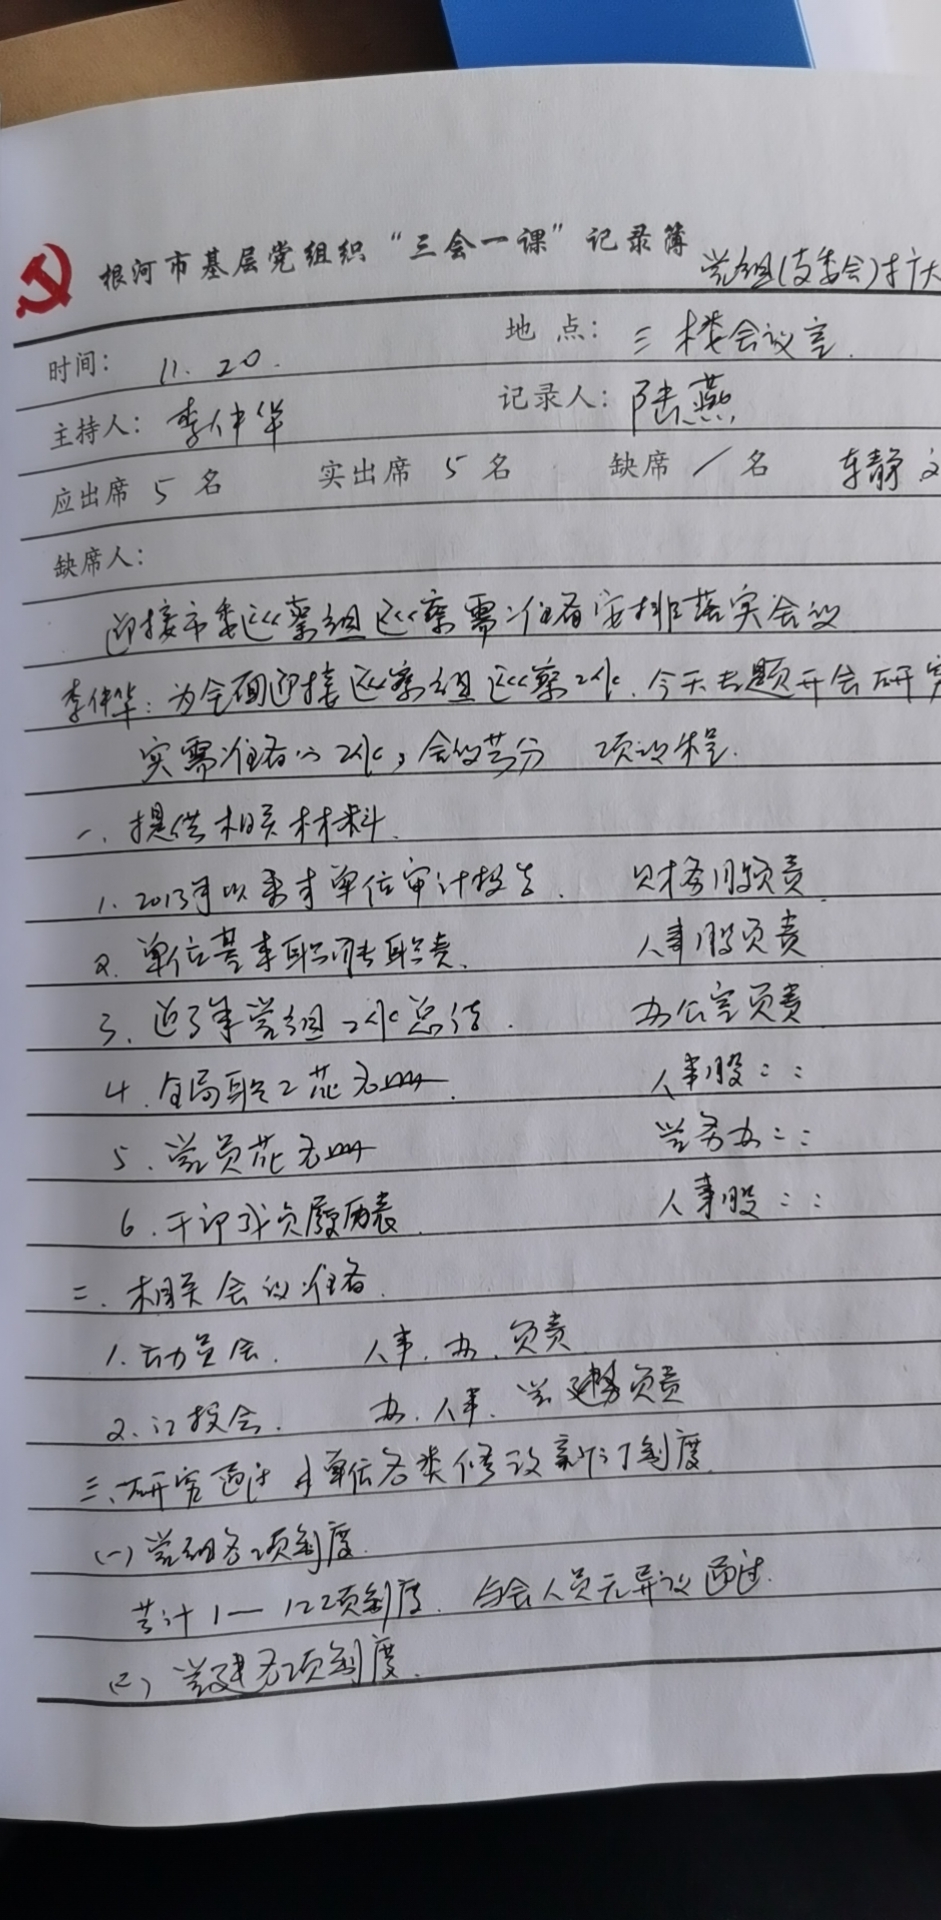 根河市基层党组织“三会一课”记录簿
党组(支委会)扩大
时间: 11.20. 地点: 三楼会议室.
主持人: 李仲华 记录人: 陆燕
应出席 5 名 实出席 5 名 缺席 / 名 车静
缺席人:
迎接市委巡察组巡察需准备安排落实会议
李仲华: 为全面迎接巡察组巡察工作. 今天专题开会研究
实需准备的工作, 会议共分 项议程.
一. 提供相关材料.
1. 2013年以来本单位审计报告. 财务股负责
2. 单位基本职能职责. 人事股负责
3. 近3年党组工作总结. 办公室负责
4. 全局职工花名册. 人事股::
5. 党员花名册 党务办::
6. 干部成员履历表. 人事股::
二. 相关会议准备.
1. 动员会. 人事. 办. 负责
2. 汇报会. 办. 人事. 党建 负责
三. 研究通过本单位各类修改新订制度.
(一) 党组各项制度.
共计1—12项制度. 与会人员无异议通过.
(二) 党建各项制度.